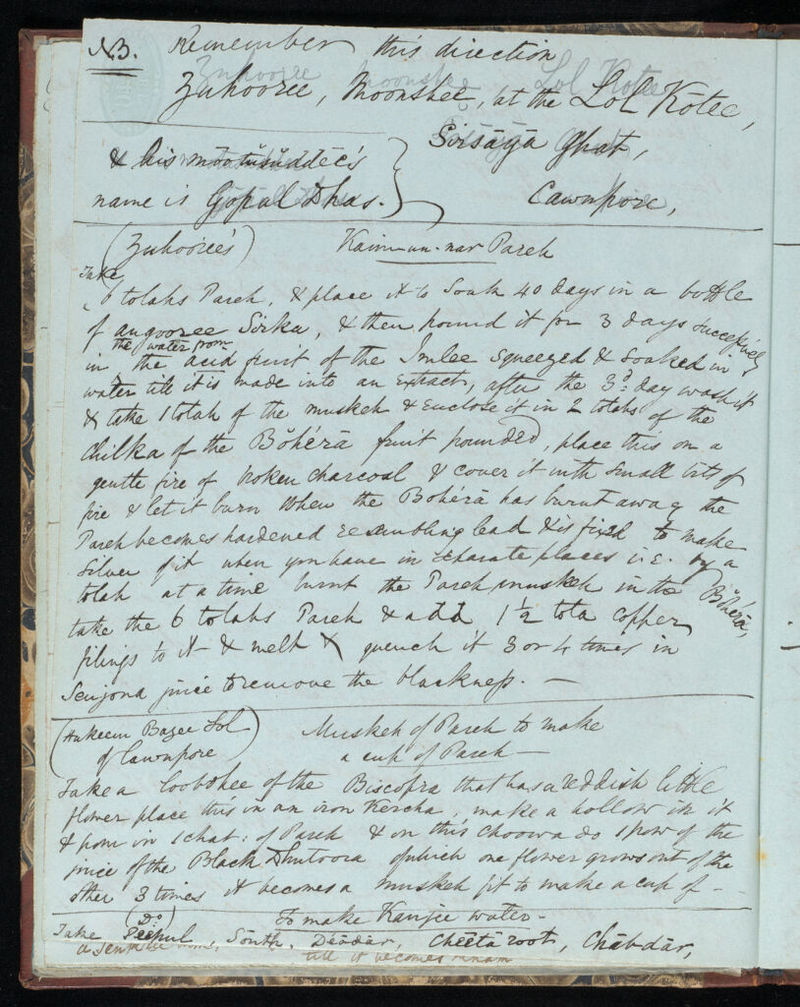 NB. Remember this direction
Zuhooree, Moonshee, at the Lol Kotee,
Sirsāya Ghat,
& his mootŭsŭddēe's
name is Gopal Dhas.
Cawnpore,
(Zuhooree's) Kaim-un-nar Pareh
Take
6 tolahs Pareh, & place it to soak 40 days in a bottle
of angooree Sirka, & then pound it for 3 days successively
the water from
in the acid fruit of the Imlee squeezed & soaked in
water till it is made into an extract, after the 3d. day wash it
& take 1 tolah of the muskeh & enclose it in 2 tolahs of the
Chilka of the Bŏhérā fruit pounded, place this on a
gentle fire of broken charcoal & cover it with small bits of
fire & let it burn when the Bohérā has burnt away the
Pareh becomes hardened resembling lead & is fixed to make
silver of it when you have in separate places i.e. by a
tolah at a time burnt the Pareh muskeh in the Bŏhérā,
take the 6 tolahs Pareh & add 1½ tola copper
filings to it & melt & quench it 3 or 4 times in
Senjona juice to remove the blackness. —
(Hukeem Bazee Lol
of Cawnpore)
Muskeh of Pareh to make
a cup of Pareh —
Take a loobdhee of the Biscopra that has a reddish little
flower place this in an iron Kercha, make a hollow in it
& pour in 1 chat: of Pareh & on this choowa do 1 pow of the
juice of the Black Dhutoora of which one flower grows out of the
other 3 times it becomes a muskeh fit to make a cup of - -
(Do) To make Kanjee water -
Take Peepul, Sonth, Dēodār, Cheeta root, Chābdār,
till it becomes